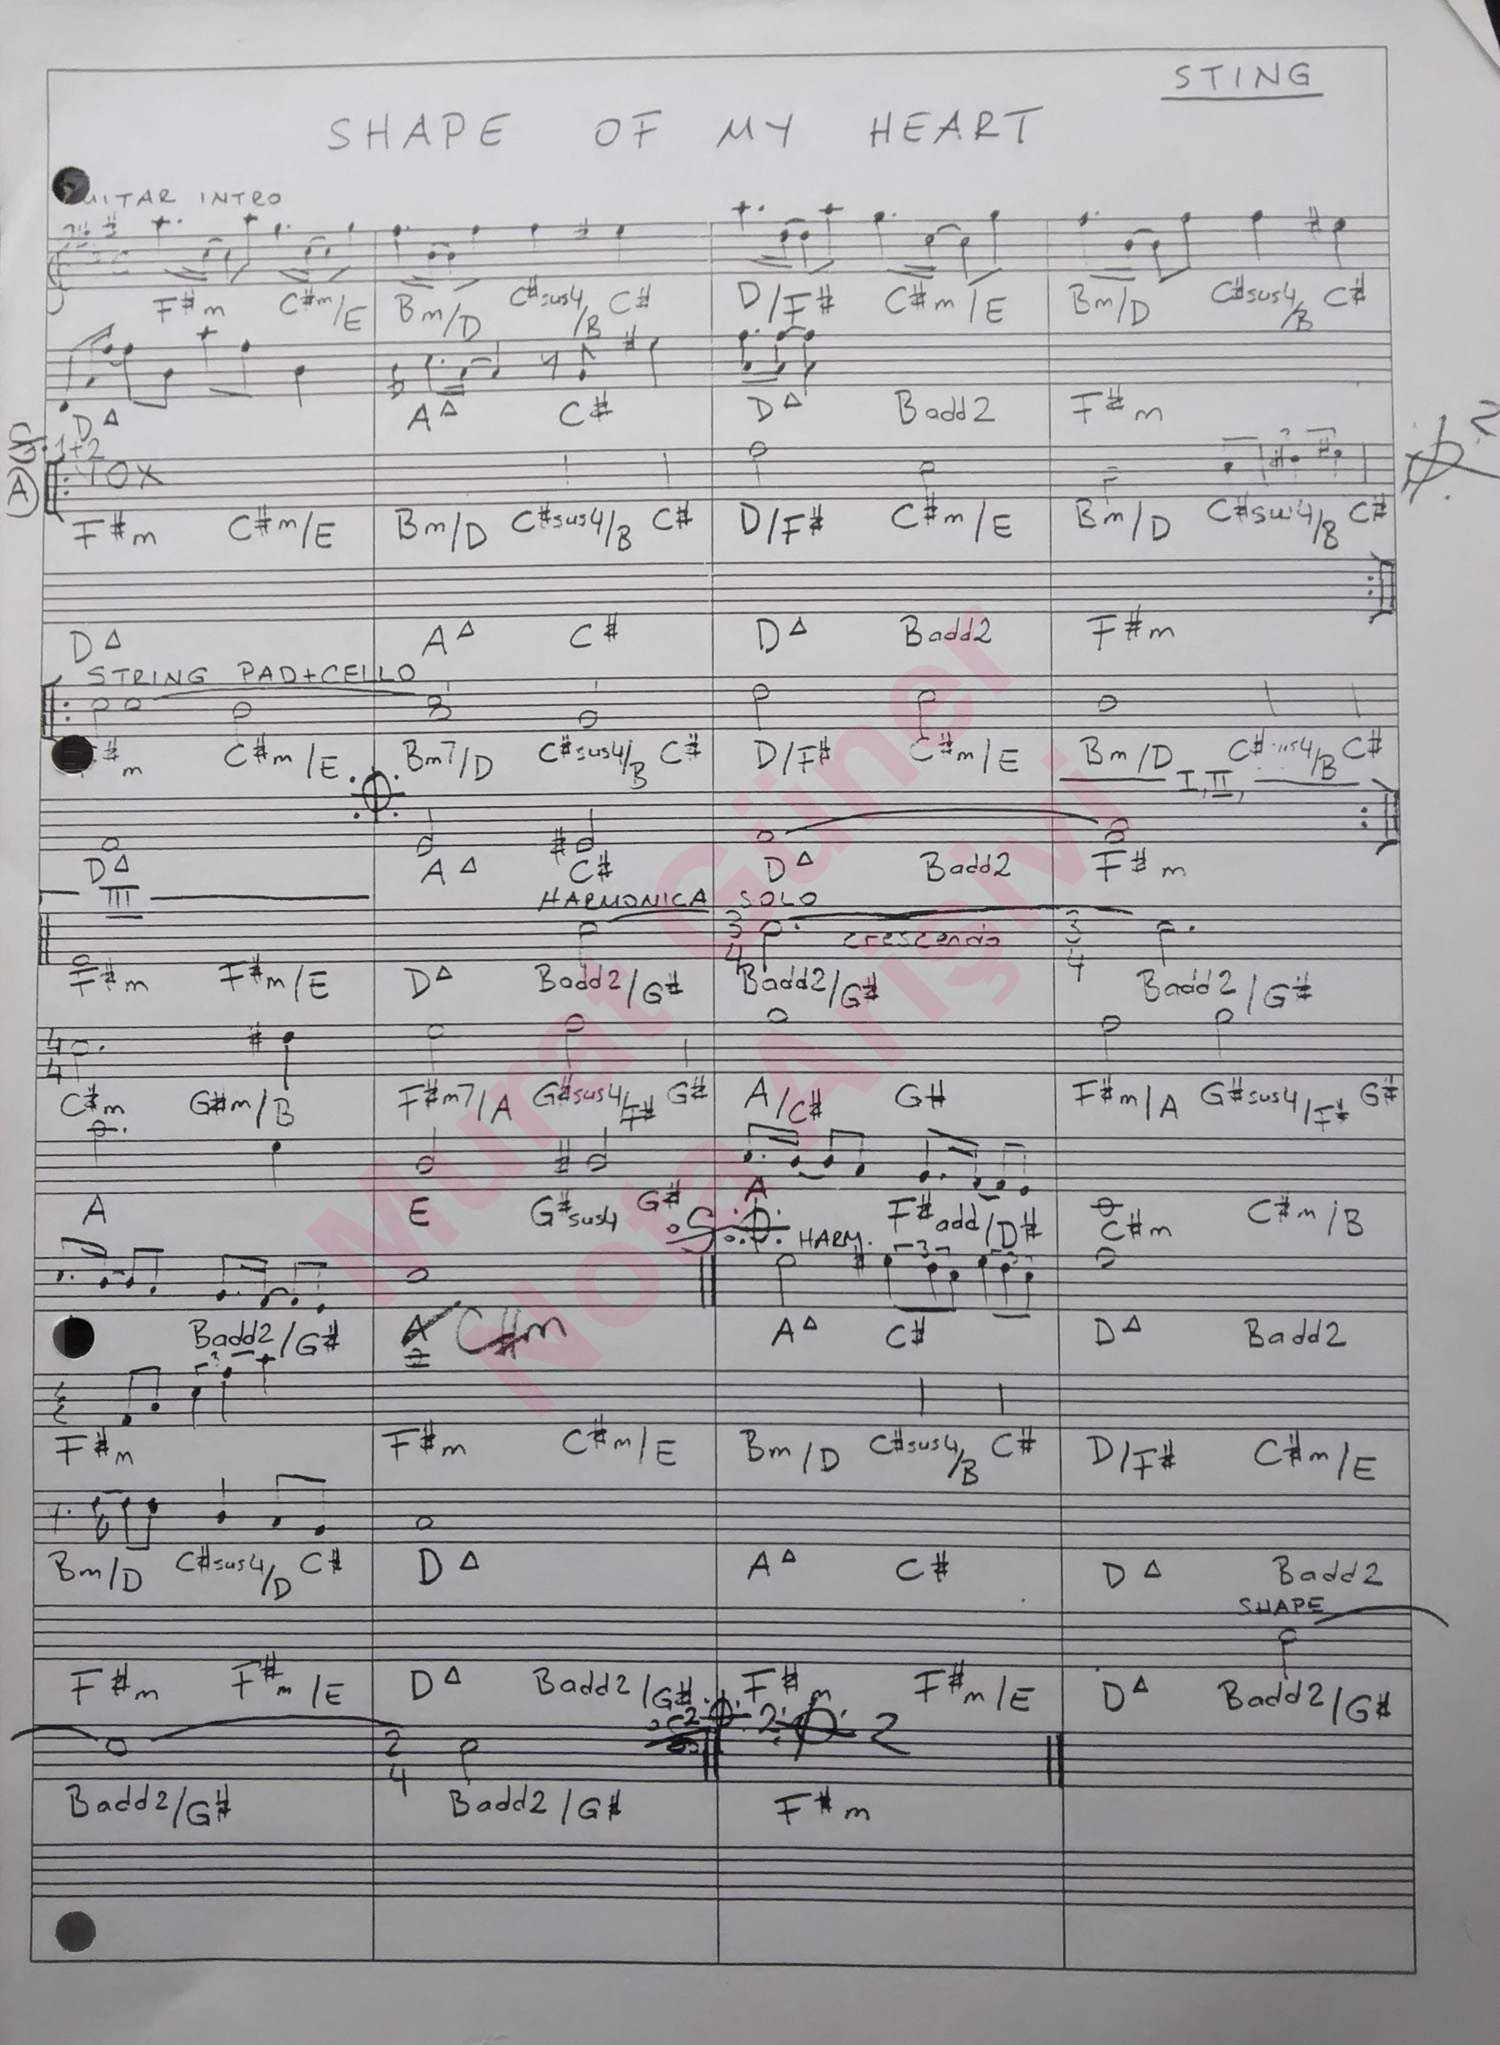 STING
SHAPE OF MY HEART
GUITAR INTRO
F#m C#m/E Bm/D C#sus4/B C# D/F# C#m/E Bm/D C#sus4/B C#
D△ A△ C# D△ Badd2 F#m
1+2
A VOX
2
F#m C#m/E Bm/D C#sus4/B C# D/F# C#m/E Bm/D C#sus4/B C#
D△ A△ C# D△ Badd2 F#m
STRING PAD+CELLO
F#m C#m/E Bm7/D C#sus4/B C# D/F# C#m/E Bm/D C#sus4/B C#
I, II,
D△ A△ C# D△ Badd2 F#m
III HARMONICA SOLO
3/4 crescendo 3/4
F#m F#m/E D△ Badd2/G# Badd2/G# Badd2/G#
4/4
C#m G#m/B F#m7/A G#sus4/F# G# A/C# G# F#m/A G#sus4/F# G#
A E G#sus4 G# A F#add/D# C#m C#m/B
HARM.
3 3
Badd2/G# A C#m A△ C# D△ Badd2
3
F#m F#m C#m/E Bm/D C#sus4/B C# D/F# C#m/E
Bm/D C#sus4/D C# D△ A△ C# D△ Badd2
SHAPE
F#m F#m/E D△ Badd2/G# F#m F#m/E D△ Badd2/G#
2/4 2 2
Badd2/G# Badd2/G# F#m
Murat Güner
Nota Arişivi